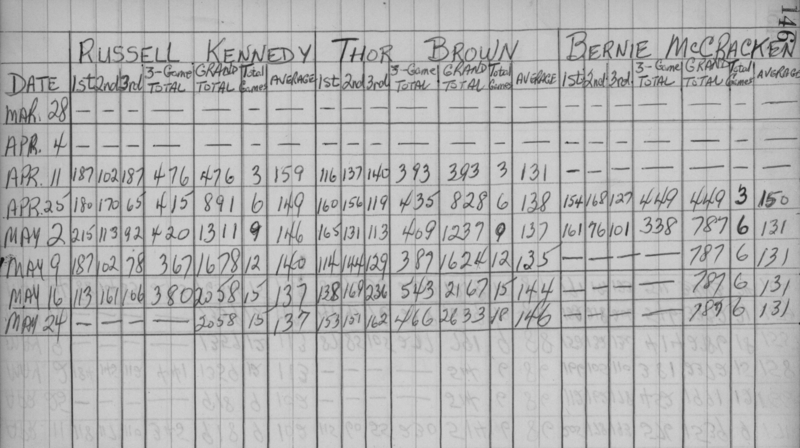 146
RUSSELL KENNEDY THOR BROWN BERNIE McCRACKEN
DATE 1st 2nd 3rd 3-Game TOTAL GRAND TOTAL Total Games AVERAGE 1st 2nd 3rd 3-Game TOTAL GRAND TOTAL Total Games AVERAGE 1st 2nd 3rd 3-Game TOTAL GRAND TOTAL Total Games AVERAGE
MAR. 28 — — — — — — — — — — — — — — — — — — — — —
APR. 4 — — — — — — — — — — — — — — — — — — — — —
APR. 11 187 102 187 476 476 3 159 116 137 140 393 393 3 131 — — — — — — —
APR. 25 180 170 65 415 891 6 149 160 156 119 435 828 6 138 154 168 127 449 449 3 150
MAY 2 215 113 92 420 1311 9 146 165 131 113 409 1237 9 137 161 76 101 338 787 6 131
MAY 9 187 102 78 367 1678 12 140 114 144 129 387 1624 12 135 — — — — 787 6 131
MAY 16 113 161 106 380 2058 15 137 138 169 236 543 2167 15 144 — — — — 787 6 131
MAY 24 — — — — 2058 15 137 153 151 162 466 2633 18 146 — — — — 787 6 131